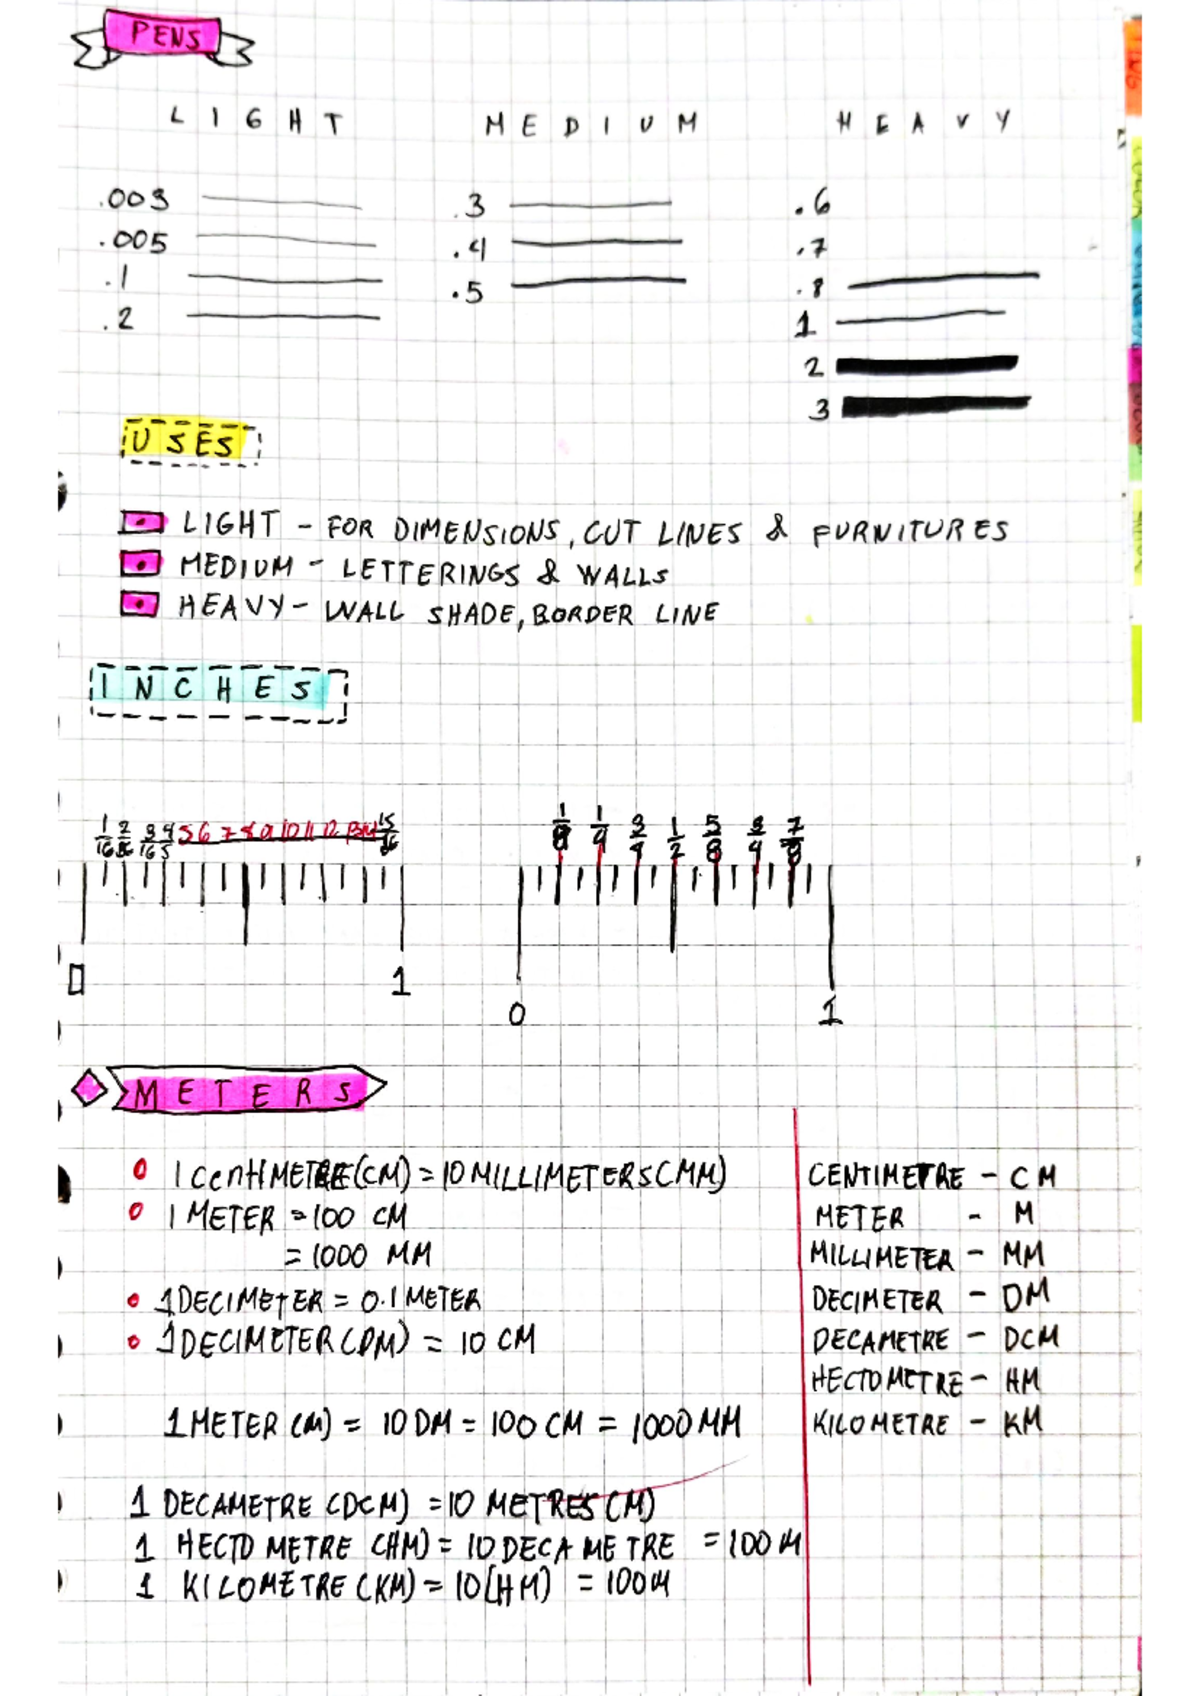 PENS
LIGHT MEDIUM HEAVY
.003 .3 .6
.005 .4 .7
.1 .5 .8
.2 1
2
3
USES
LIGHT - FOR DIMENSIONS, CUT LINES & FURNITURES
MEDIUM - LETTERINGS & WALLS
HEAVY - WALL SHADE, BORDER LINE
INCHES
1/16 2/16 3/16 4/5 5 6 7 8 9 10 11 12 13 14 15/16 1/8 1/4 3/4 1/2 5/8 3/4 7/8
0 1
0 1
METERS
1 CentIMETRE (CM) = 10 MILLIMETERS (MM) CENTIMETRE - CM
1 METER = 100 CM METER - M
= 1000 MM MILLIMETER - MM
1 DECIMETER = 0.1 METER DECIMETER - DM
1 DECIMETER (DM) = 10 CM DECAMETRE - DCM
HECTOMETRE - HM
1 METER (M) = 10 DM = 100 CM = 1000 MM KILOMETRE - KM
1 DECAMETRE (DCM) = 10 METRES (M)
1 HECTO METRE (HM) = 10 DECAMETRE = 100 M
1 KILOMETRE (KM) = 10 (HM) = 100 M